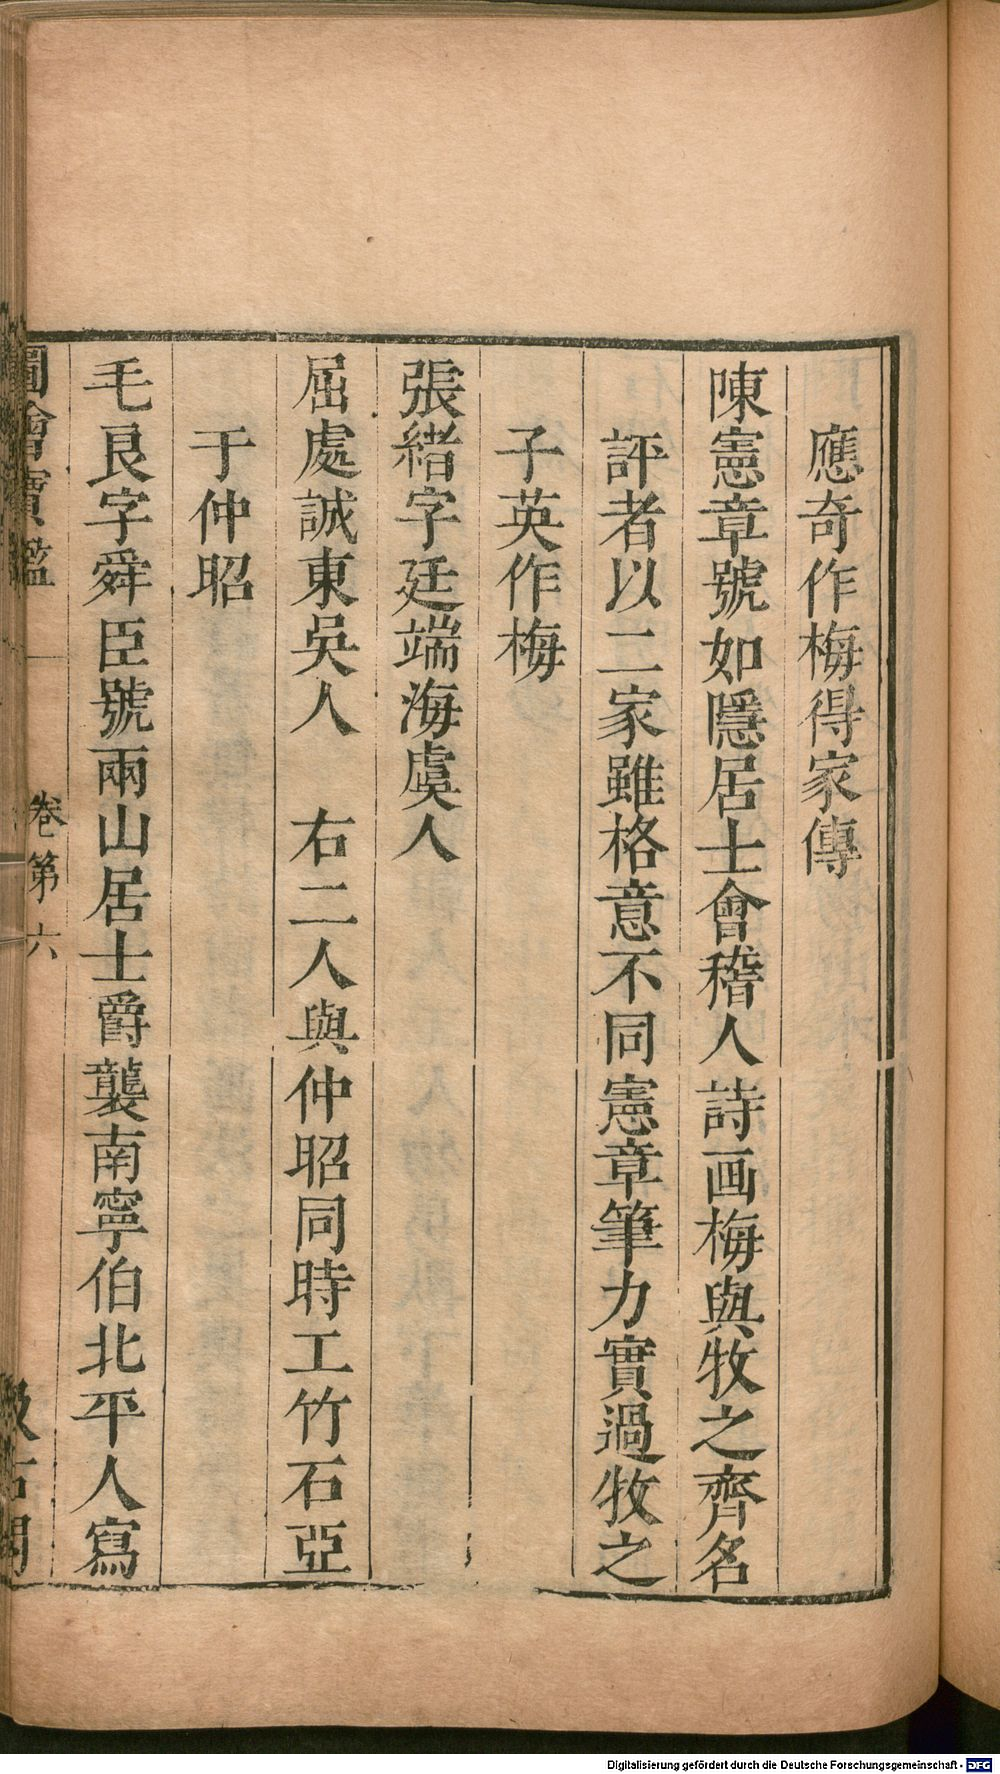 應奇作梅得家傳
陳憲章號如隱居士會稽人詩画梅與牧之齊名
評者以二家雖格意不同憲章筆力實過牧之
子英作梅
張緒字廷端海虞人
屈處誠東吳人　右二人與仲昭同時工竹石亞
于仲昭
毛良字舜臣號兩山居士爵襲南寧伯北平人寫
圖繪寶鑑　卷第六　汲古閣
Digitalisierung gefördert durch die Deutsche Forschungsgemeinschaft - DFG